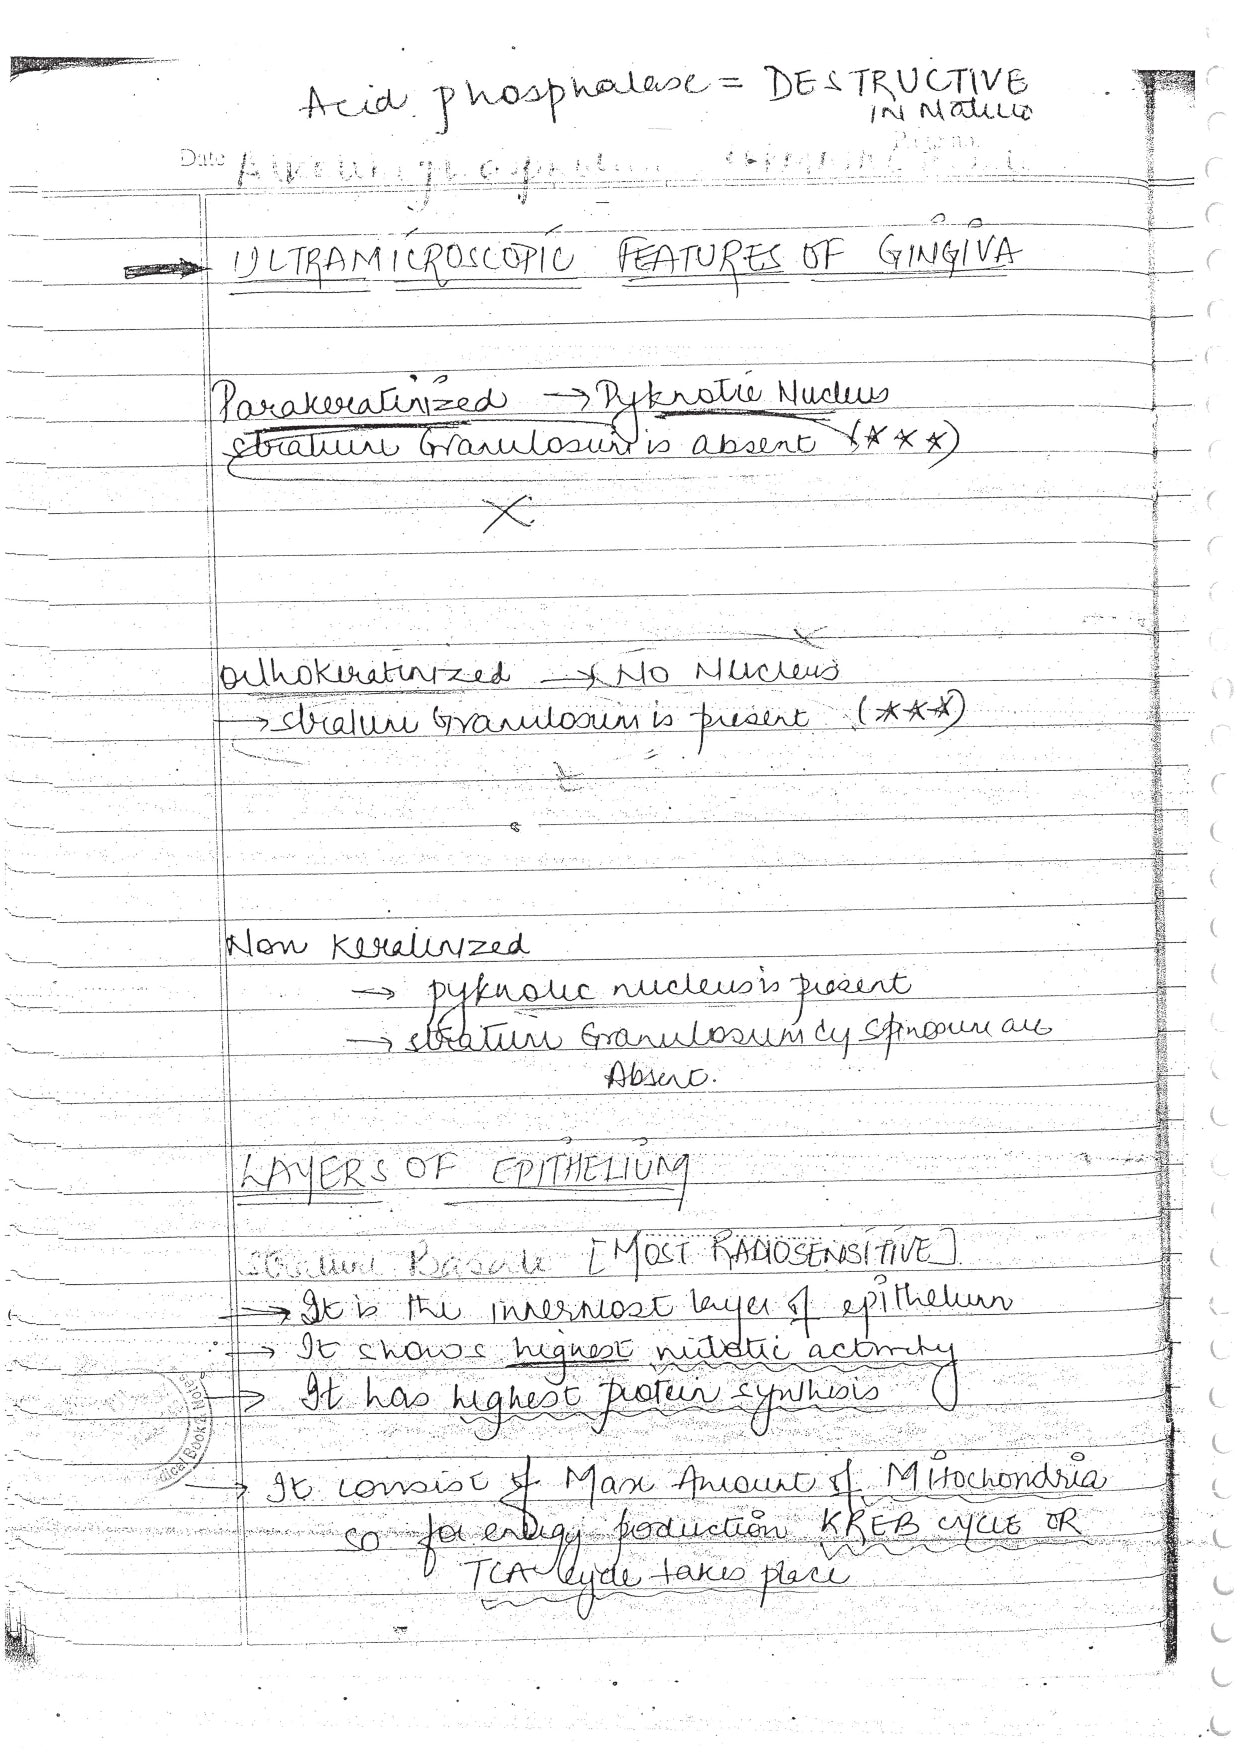 Acid phosphatase = DESTRUCTIVE
IN Nature
Date
ULTRAMICROSCOPIC FEATURES OF GINGIVA
Parakeratinized → Pyknotic Nucleus
stratum Granulosum is absent (***)
X
Orthokeratinized → No Nucleus
→ stratum Granulosum is present (***)
Non Keratinized
→ pyknotic nucleus is present
→ stratum Granulosum & spinosum are
Absent.
LAYERS OF EPITHELIUM
Stratum Basale [MOST RADIOSENSITIVE]
→ It is the innermost layer of epithelium
→ It shows highest mitotic activity
→ It has highest protein synthesis
→ It consist of Max Amount of Mitochondria
so for energy production KREB CYCLE OR
TCA cycle takes place